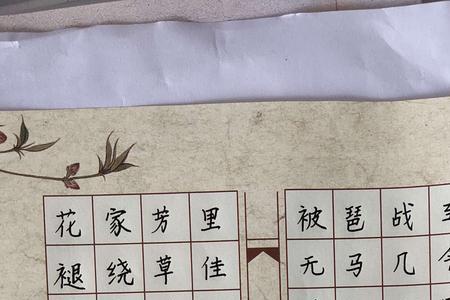 花褪
家绕
芳草
里佳
被无
琵马
战几